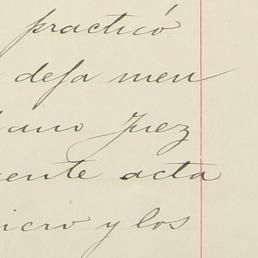 practicó
deja men
ano Juez
ente acta
icro y los